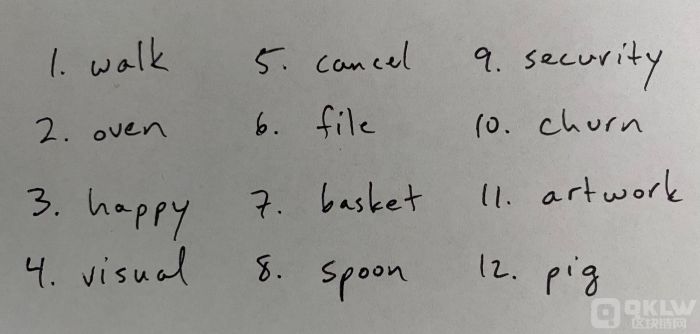 1. walk
2. oven
3. happy
4. visual
5. cancel
6. file
7. basket
8. spoon
9. security
10. churn
11. artwork
12. pig
QKLW
区块链网